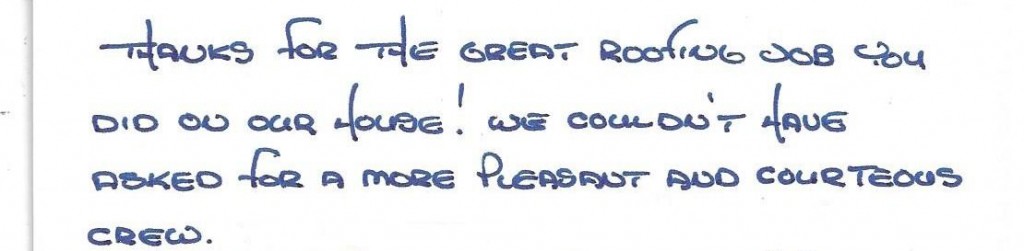 THANKS FOR THE GREAT ROOFING JOB YOU
DID ON OUR HOUSE! WE COULDN'T HAVE
ASKED FOR A MORE PLEASANT AND COURTEOUS
CREW.